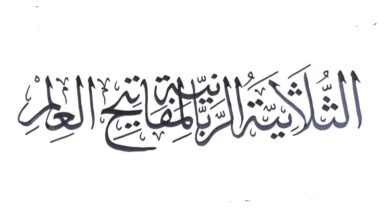 الثُّلَاثِيَّةُ الرَّبَّانِيَّةُ لِمَفَاتِيحِ العِلْمِ